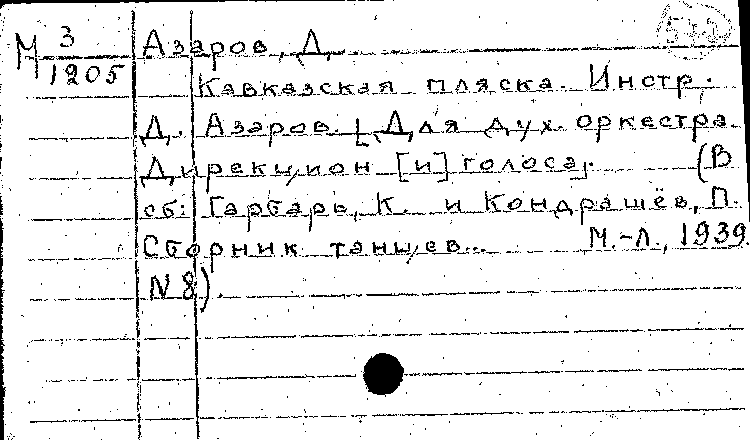 М 3/1205
Азаров, Д.
Кавказская пляска. Инстр.
Д. Азаров. [Для дух. оркестра.
Дирекцион [и] голоса]. (В
сб: Гарбарь, К. и Кондрашёв, П.
Сборник танцев... М.-Л., 1939.
N 8).